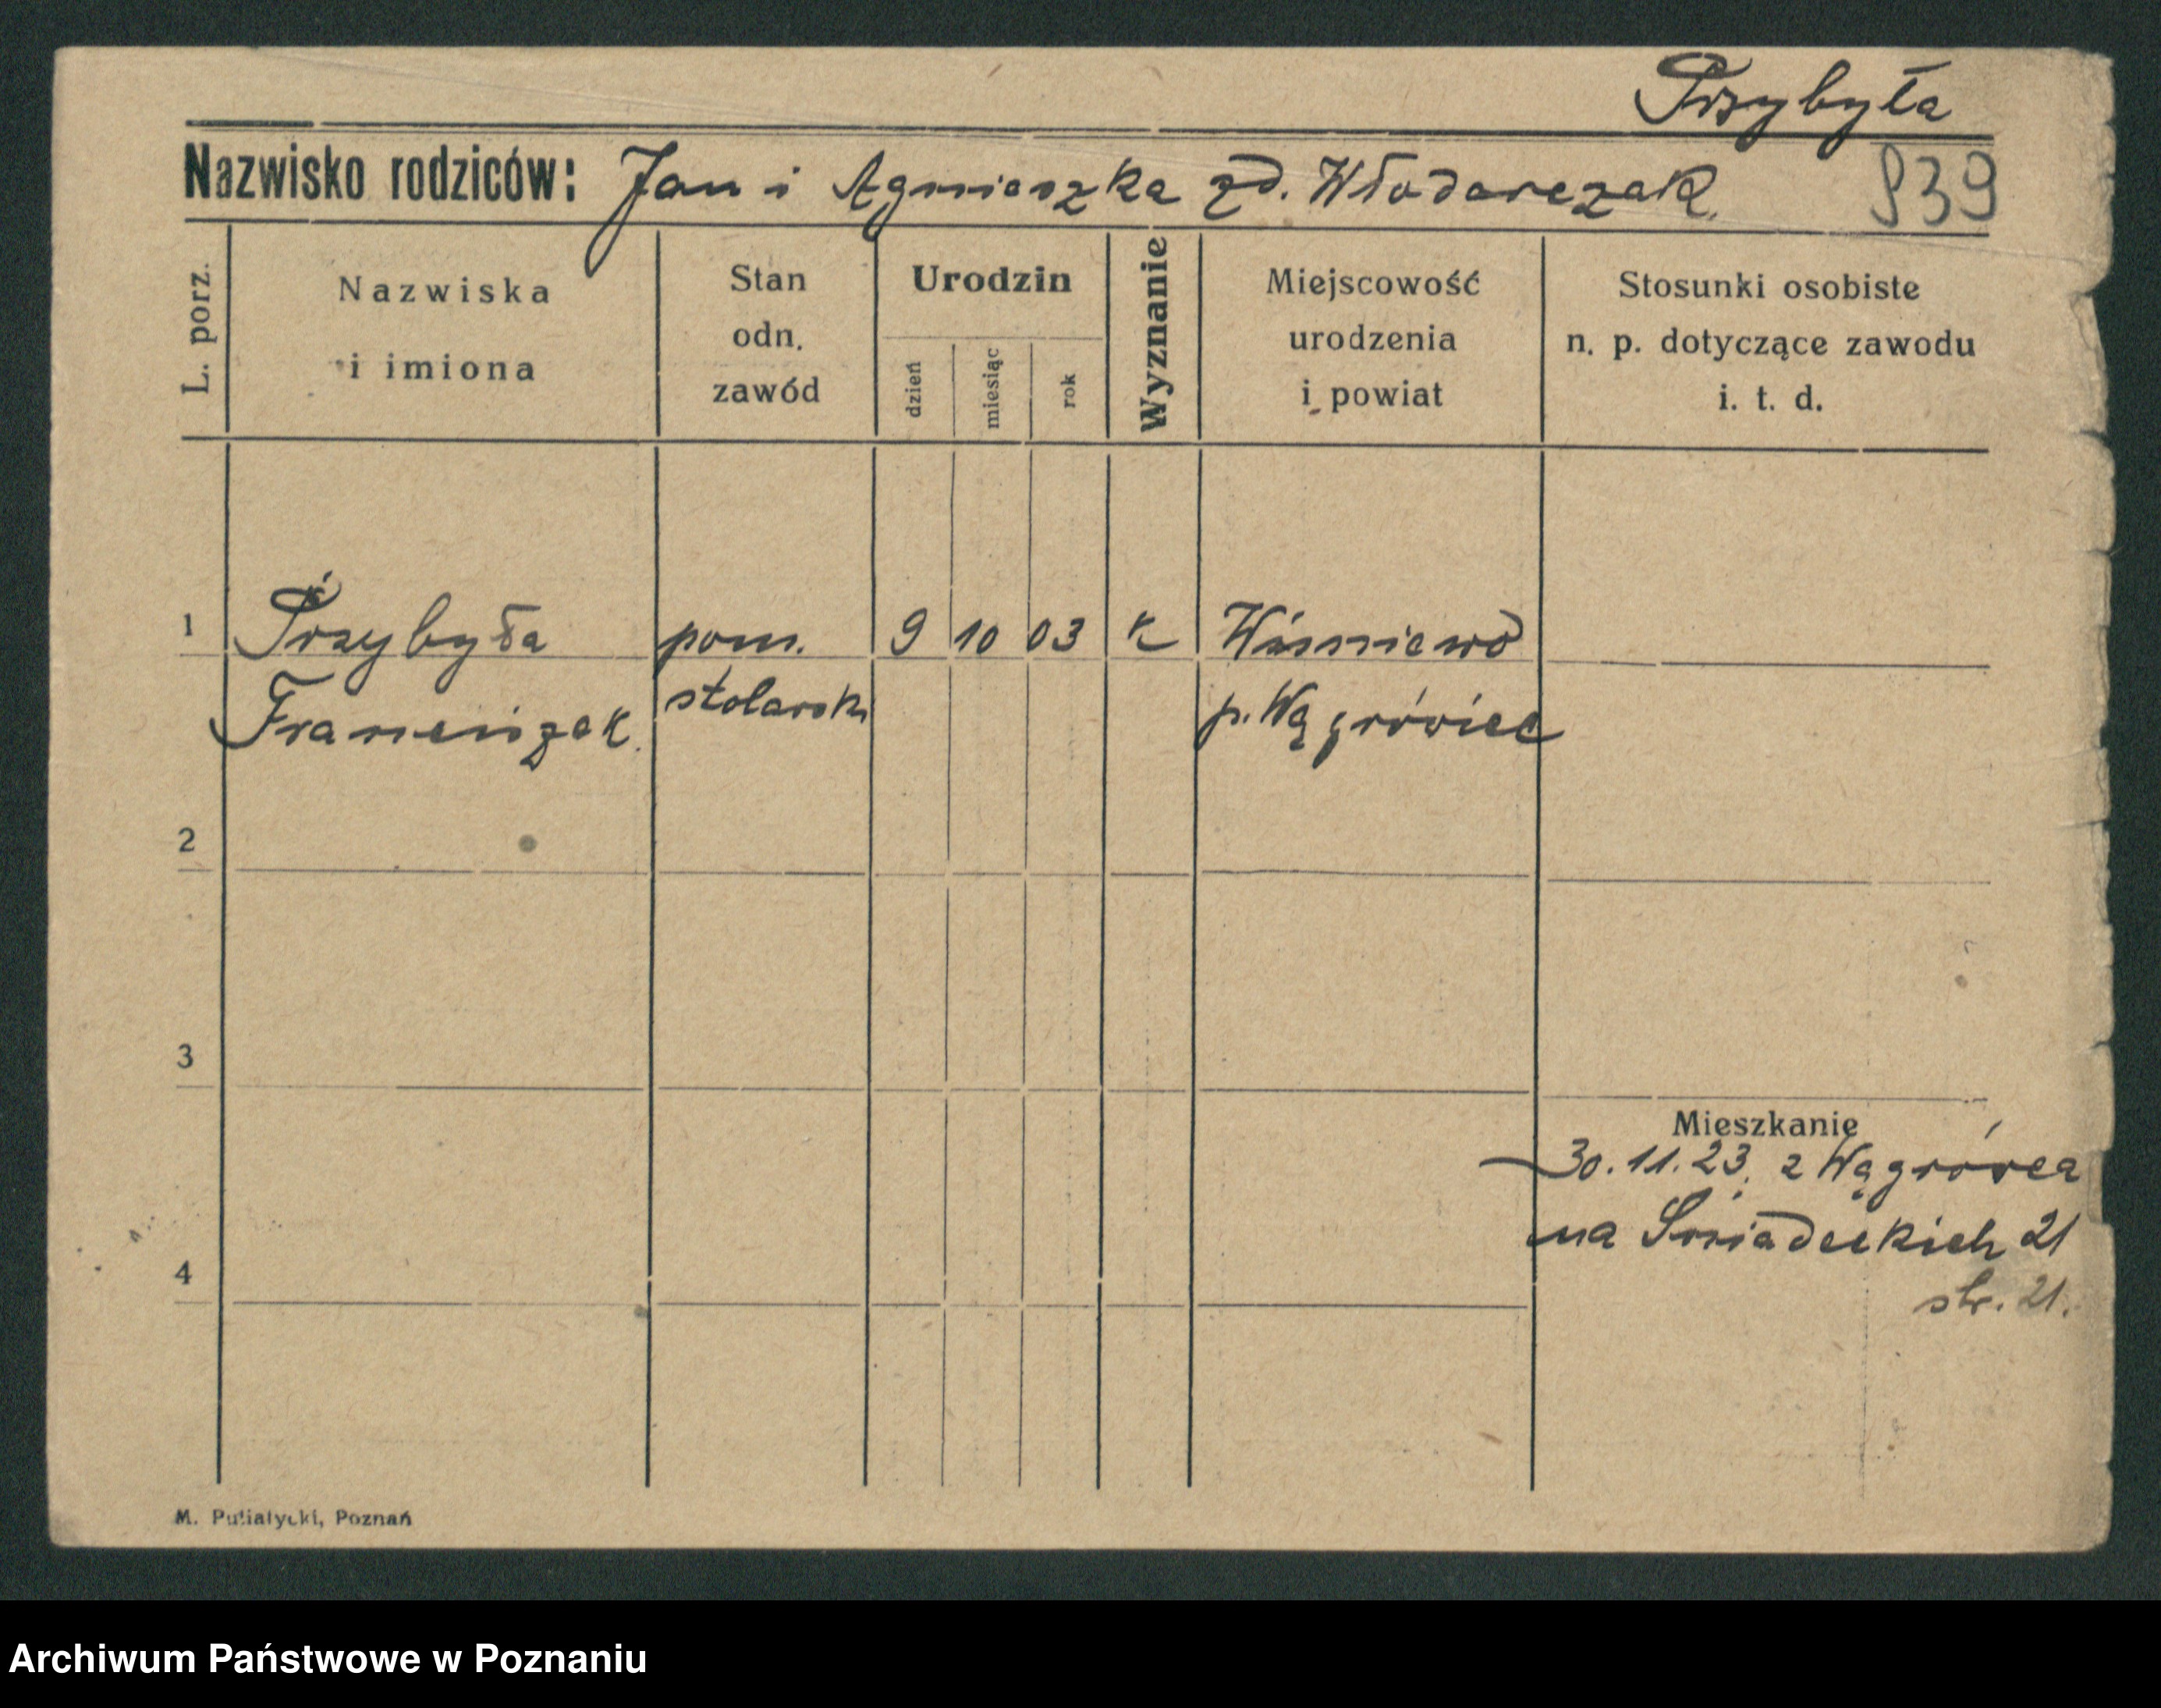 Przybyła
Nazwisko rodziców: Jan i Agnieszka zd. Włodarczak.
939
L. porz.
Nazwiska
i imiona
Stan
odn.
zawód
Urodzin
dzień
miesiąc
rok
Wyznanie
Miejscowość
urodzenia
i powiat
Stosunki osobiste
n. p. dotyczące zawodu
i. t. d.
1 Przybyła pom. 9 10 03 k Wiśniewo
Franciszek. stolarski p. Wągrówiec
2
3
Mieszkanie
30.11.23. z Wągrówca
na Śniadeckich 21
4
str. 21.
M. Putiatycki, Poznań
Archiwum Państwowe w Poznaniu